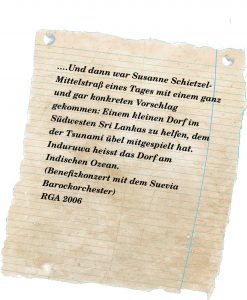 ....Und dann war Susanne Schietzel-
Mittelstraß eines Tages mit einem ganz
und gar konkreten Vorschlag
gekommen: Einem kleinen Dorf im
Südwesten Sri Lankas zu helfen, dem
der Tsunami übel mitgespielt hat.
Induruwa heisst das Dorf am
Indischen Ozean.
(Benefizkonzert mit dem Suevia
Barockorchester)
RGA 2006